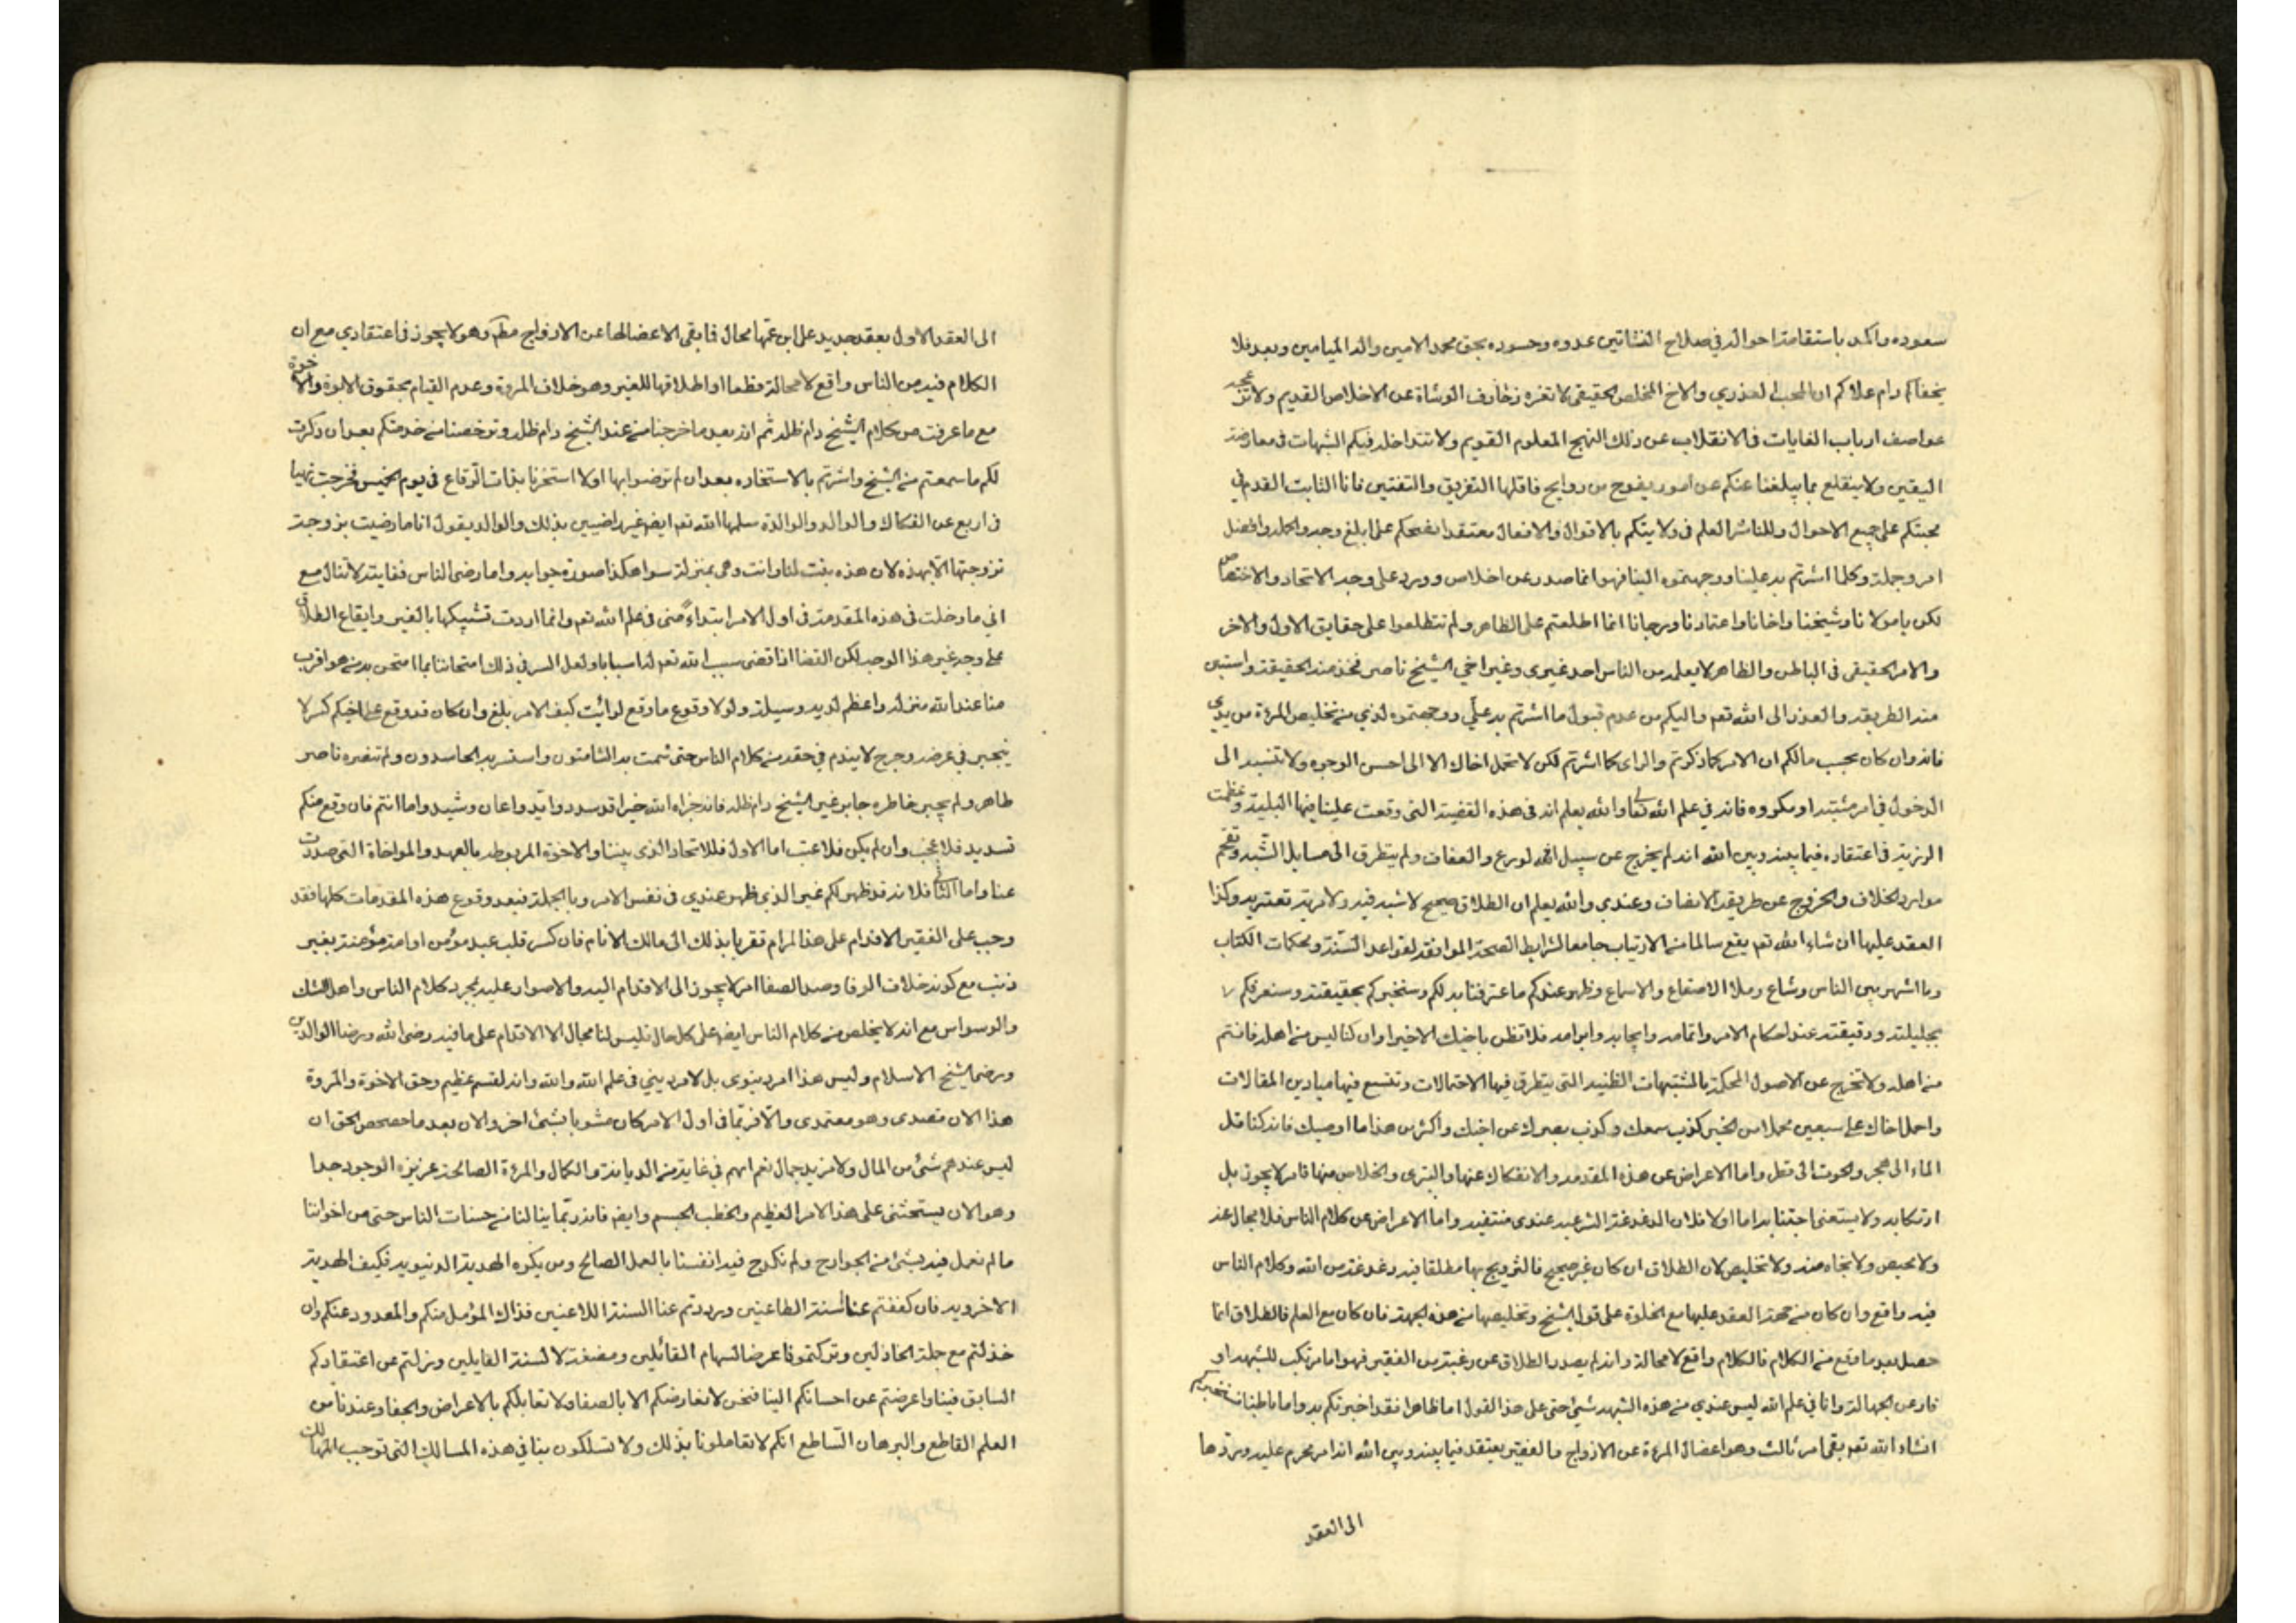 سعوده واكمد باستقامة احواله في صلاح النشاتين عدوه وحسوده بحق محمد الامين واله الميامين وبعد فلا
يخفاكم دام علاكم ان المحب العذري والاخ المخلص الحقيقي لا تغره زخارف الوشاة عن الاخلاص القديم ولا تزعجه
عواصف ارباب الغايات في الانقلاب عن ذلك النهج المعلوم القويم ولا تتداخله فيكم الشبهات في معارضة
اليقين ولا ينقلع بما يبلغنا عنكم عن امور يفوح من روايح فاقلها التفريق والتفتين فانا الثابت القدم في
محبتكم على جميع الاحوال والناشر العلم في ولايتكم بالاقوال والافعال معتقدا نصحكم على ابلغ وجه واكمله وافضل
امر وجملة وكلما اشرتم به علينا ووجهتموه الينا فهو انما صدر عن اخلاص وورد على وجه الاتحاد والاختصاص
لكن يا مولانا وشيخنا واخانا واعتادنا ورجانا انما اطلعتم على الظاهر ولم تتطلعوا على حقايق الاول والاخر
والامر الحقيقي في الباطن والظاهر لا يعلمه من الناس احد غيري وغير اخي الشيخ ناصر فخذ منه الحقيقة واستبن
منه الطريقه والعذر الى الله تعم واليكم من عدم قبول ما اشرتم به علي ووجهتموه لدي من تخليص المرءة من يدي
فانه وان كان بحسب مالكم ان الامر كما ذكرتم والراي كما اشرتم لكن لا تحمل اخاك الا الى احسن الوجوه ولا تنسبه الى
الدخول في امر مشتبه او مكروه فانه في علم الله تعالى والله يعلم انه في هذه القضية التي وقعت علينا فيها البلية وعظمت
الرزية في اعتقاده فيما بينه وبين الله انه لم يخرج عن سبيل الورع والعفاف ولم يتطرق الى مسايل الشبه وتقحم
موارد الخلاف والخروج عن طريقة الانصاف وعندي والله يعلم ان الطلاق صحيح لا شبه فيه ولا مرية تعتريه وكذا
العقد عليها ان شاء الله تعم يقع سالما من الارتياب جامعا لشرايط الصحة الموافقة لقواعد السنة ومحكمات الكتاب
وما اشهر بين الناس وشاع وملا الاصقاع والاسماع وظهر عندكم ما عترفنا به لكم وسنخبركم بحقيقته وسنعرفكم
بجليلته ودقيقته عند احكام الامر واتمامه وايجابه وابرامه فلا تظن باخيك الا خيرا وان كنا ليس من اهله فانتم
من اهله ولا تخرج عن الاصول المحكمة بالمشتبهات الظنيه التي يتطرق فيها الاحتمالات وتتسع فيها ميادين المقالات
واحمل اخاك على سبعين محملا من الخير كذب سمعك وكذب بصرك عن اخيك واكثر من هذا ما اوصيك فانه كنا قل
الماء الى هجر والحوت الى قطر واما الاعراض عن هذه المقدمه والانفكاك عنها والتبري والخلاص منها فامر لا يجوز بل
ارتكابه ولا يستعنى اجتنابه اما اولا فلان الدغدغة الشرعيه عندي منتفيه واما الاعراض عن كلام الناس فلا مجال عنه
ولا محيص ولا نجاه منه ولا تخليص لان الطلاق ان كان غير صحيح فالتزويج بها مطلقا فيه دغدغة من الله وكلام الناس
فيه واقع وان كان من جهة العقد عليها مع الخلوة على قول الشيخ وتخليصها من هذه الجهة فان كان مع العلم فالطلاق انما
حصل بعد ما وقع من الكلام فالكلام واقع لا محالة وانه لم يصدر الطلاق عن رغبة من الفقير فهو اما مرتكب للشبهه او
فار عن الجهالة وانا في علم الله ليس عندي من هذه الشبهه شئ حتى على هذا القول اما ظاهرا فقد اخبرتكم به واما باطنا سنخبركم
انشاء الله تعم بقى امر ثالث وهو اعضال المرءة عن الازواج فالفقير يعتقد فيما بينه وبين الله انه امر محرم عليه وردها
الى العقد
الى العقد الاول بعقد جديد على ابن عمها محال فابقى الاعضالها عن الازواج مطم وهو لا يجوز في اعتقادي مع ان
الكلام فيه من الناس واقع لا محالة قطعا او اطلاقها للغير وهو خلاف المروة وعدم القيام بحقوق الابوة والاخوة
مع ما عرفت من كلام الشيخ دام ظله ثم انه بعد ما خرجنا من عند الشيخ دام ظله وترخصنا من خدمتكم بعد ان ذكرت
لكم ما سمعتم من الشيخ واشرتم بالاستخاره بعد ان لم ترضوا بها اولا استخرنا بذات الرقاع في يوم الخميس فخرجت نهيا
في اربع عن الفكاك والوالد والوالدة سلمها الله تعم ايضا غير راضيين بذلك والوالد يقول انا ما رضيت بزوجة
تزوجتها الا بهذه لان هذه بنت لنا وانت وهي بمنزلة سوا هكذا صورة جوابه واما رضى الناس فغاية لا تنال مع
اني ما دخلت في هذه المقدمة في اول الامر ابتداءً مني في علم الله تعم وانما اردت تشبيكها بالغير وايقاع الطلاق
على وجه غير هذا الوجه لكن القضا اذا قضى سبب الله تعم له اسبابا ولعل السر في ذلك امتحاننا بما امتحن به من هو اقرب
منا عند الله منزلة واعظم لديه وسيلة ولولا وقوع ما وقع لرايت كيف الامر بلغ وان كان قد وقع على اخيكم كسر لا
ينجبر في عرضه وجرح لا يندم في حقه من كلام الناس حتى شمت به الشامتون واستسر به الحاسدون ولم تنصره ناصر
ظاهر ولم يجبر خاطره جابر غير الشيخ دام ظله فانه جزاه الله خيرا قد سدد وايد واعان وشيد واما انتم فان وقع منكم
تسديد فلا عجب وان لم يكن فلا عتب اما الاول فللاتحاد الذي بيننا والاخوة المربوطه بالعهد والمواخاة التي صدرت
عنا واما الثاني فلانه قد ظهر لكم غير الذي ظهر عندي في نفس الامر وبالجملة فبعد وقوع هذه المقدمات كلها فقد
وجب على الفقير الاقدام على هذا المرام تقربا بذلك الى مالك الانام فان كسر قلب عبد مؤمن او امة مؤمنة بغير
ذنب مع كونه خلاف الوفا وضد الصفا امر لا يجوز الى الاقدام اليه والاصرار عليه بمجرد كلام الناس واهل الشك
والوسواس مع انه لا يخلص من كلام الناس ايضا على كل حال فليس لنا مجال الا الاقدام على ما فيه رضى الله ورضا الوالدين
ورضى شيخ الاسلام وليس هذا امر دينوى بل لامر ديني في علم الله والله وانه لقسم عظيم وحق الاخوة والمروة
هذا الان مقصدى وهو معتمدى والا فربما في اول الامر كان مشوبا بشئ اخر والان بعد ما حصحص الحق ان
ليس عندهم شئ من المال ولا مزيد جمال نعم انهم في غاية من الديانة والكمال والمرءة الصالحة عزيزة الوجود جدا
وهو الان يستحثنى على هذا الامر العظيم والخطب الجسيم وايضا فانه ربما ينالنا من حسنات الناس حتى من اخواننا
ما لم نعمل فيه بشئ من الجوارح ولم نكدح فيه انفسنا بالعمل الصالح ومن يكره الهدية الدنيويه فكيف الهدية
الاخرويه فان كففتم عنا السنة الطاعنين ورددتم عنا السنة اللاعنين فذاك المؤمل منكم والمعدود عنكم وان
خذلتم مع جملة الخاذلين وتركتمونا عرضا لسهام القائلين ومضغة لالسنة القايلين ونزلتم عن اعتقادكم
السابق فينا واعرضتم عن احسانكم الينا فنحن لا نعارضكم الا بالصفا ولا نقابلكم بالاعراض والجفا وعندنا من
العلم القاطع والبرهان الساطع انكم لا تعاملونا بذلك ولا تسلكون بنا في هذه المسالك التي توجب المهالك